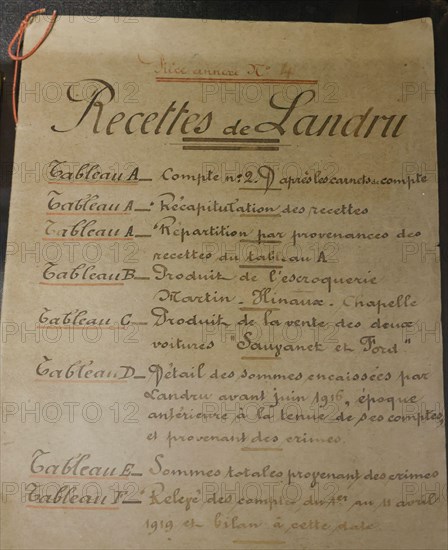 Pièce annexe N° 4
Recettes de Landru
Tableau A — Compte n° 2. D'après les carnets de compte
Tableau A' — Récapitulation des recettes
Tableau A" — Répartition par provenances des
recettes du tableau A
Tableau B — Produit de l'escroquerie
Martin - Hinaux - Chapelle
Tableau C — Produit de la vente des deux
voitures "Sauzanet et Ford"
Tableau D — Détail des sommes encaissées par
Landru avant juin 1916, époque
antérieure à la tenue de ses comptes,
et provenant des crimes.
Tableau E — Sommes totales provenant des crimes
Tableau F — Relevé des comptes du 1er au 11 avril
1919 et bilan à cette date
PHOTO 12